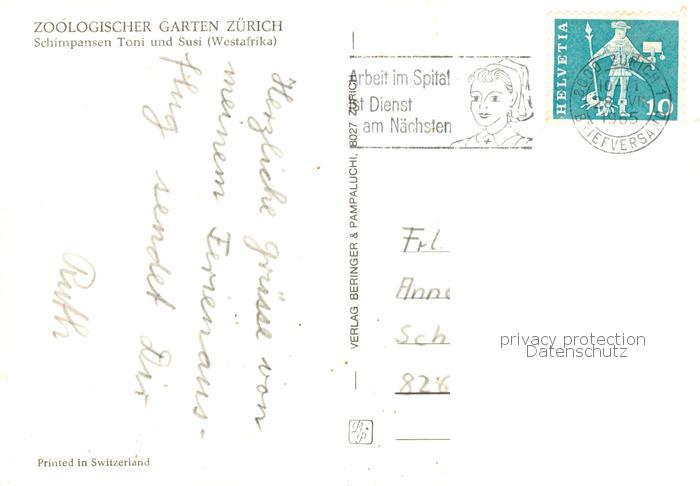 ZOOLOGISCHER GARTEN ZÜRICH
Schimpansen Toni und Susi (Westafrika)
Herzliche Grüsse von
meinem Ferienaus-
flug sendet Dir
Ruth
Printed in Switzerland
VERLAG BERINGER & PAMPALUCHI, 8027 ZÜRICH
Arbeit im Spital
ist Dienst
am Nächsten
HELVETIA
10
8000 ZÜRICH 1
1965
BRIEFVERSAND
Frl.
Anne
Sch
826
B
P
privacy protection
Datenschutz